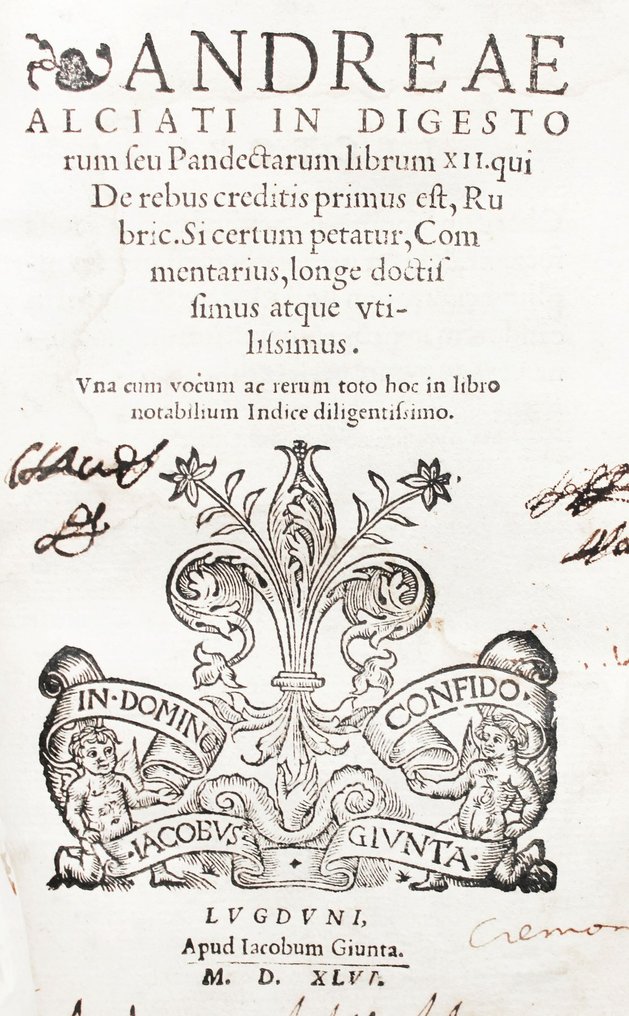 ANDREAE
ALCIATI IN DIGESTO
rum ſeu Pandectarum librum XII. qui
De rebus creditis primus eſt, Ru
bric. Si certum petatur, Com
mentarius, longe doctiſ
ſimus atque vti-
liſsimus.
Vna cum vocum ac rerum toto hoc in libro
notabilium Indice diligentiſsimo.
IN·DOMINO
CONFIDO·
·IACOBVS·
GIVNTA·
LVGDVNI,
Apud Iacobum Giunta.
M. D. XLVI.